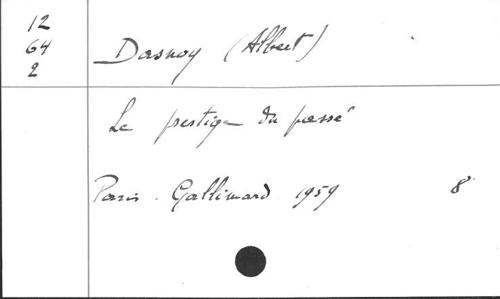 12
64
2
Dasnoy (Albert)
Le prestige du passé
Paris. Gallimard 1959 8°